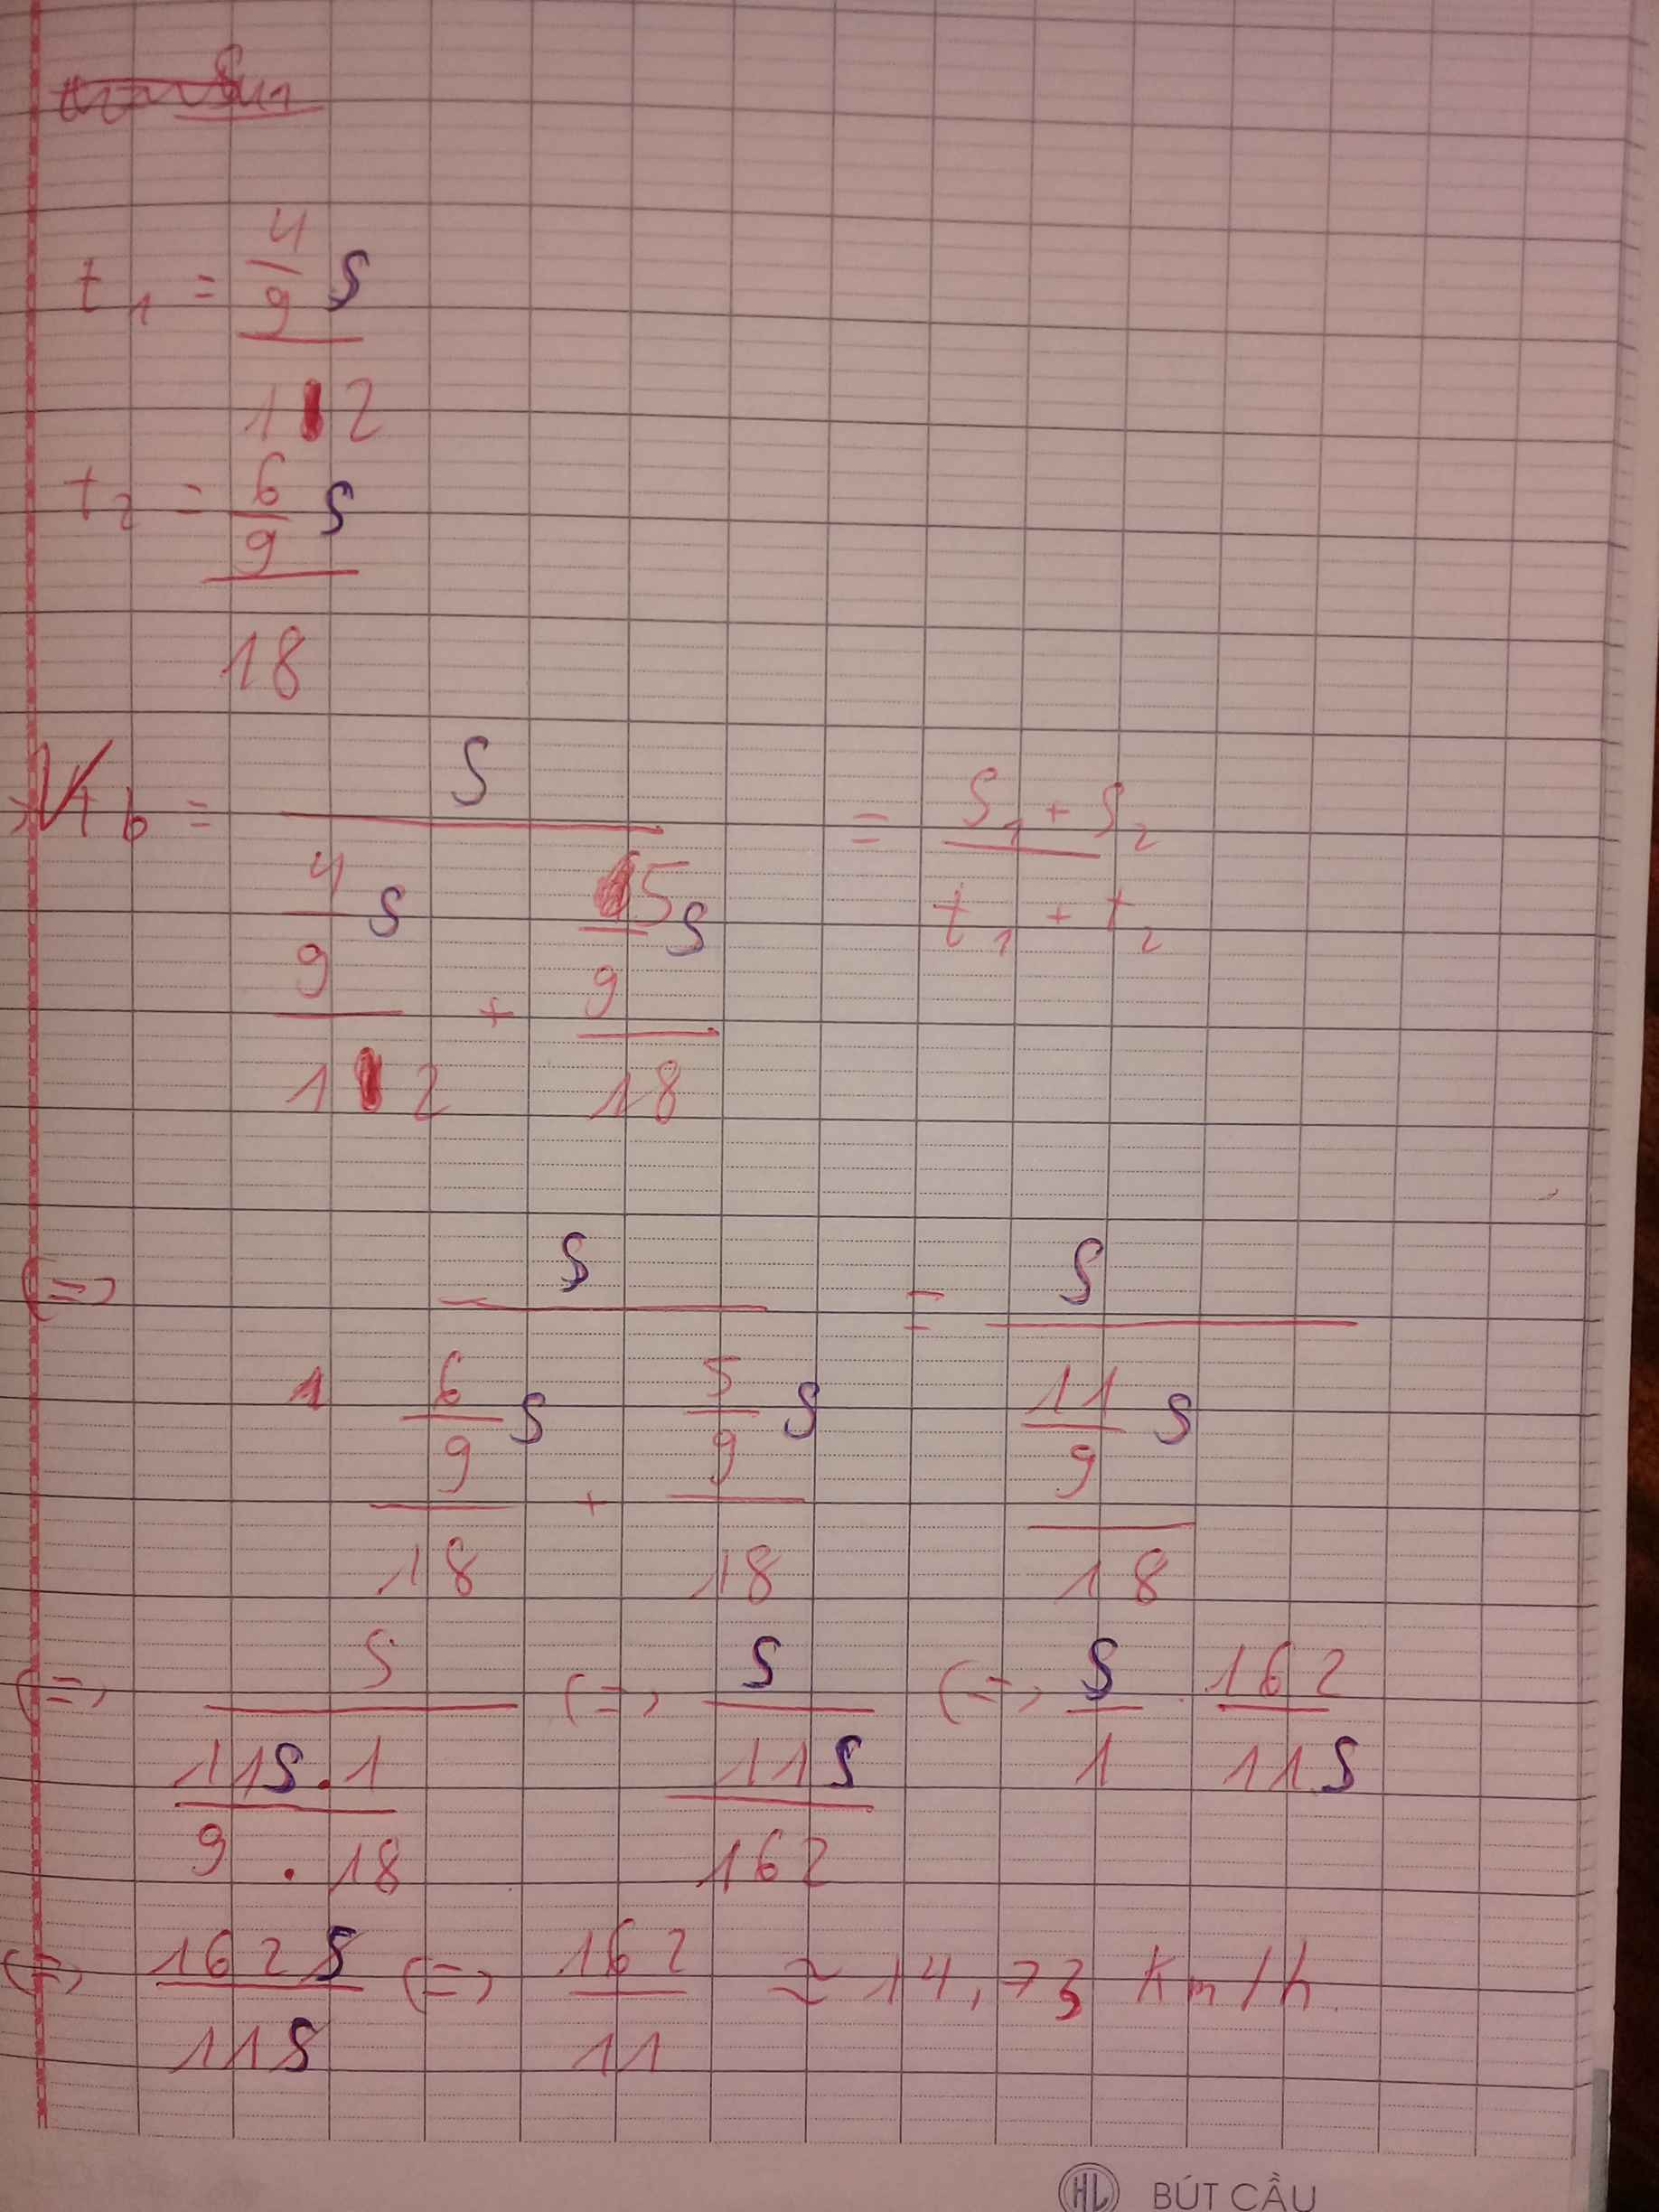 t₁ = (4/9 S)/12
t₂ = (6/9 S)/18
Vtb = S/((4/9 S)/12 + (5/9 S)/18) = (S₁ + S₂)/(t₁ + t₂)
(=> S/((6/9 S)/18 + (5/9 S)/18) = S/((11/9 S)/18)
(=> S/((11S.1)/(9 . 18)) (=> S/(11S/162) (=> S/1 . 162/11S
(=> 162S/11S (=> 162/11 ≈ 14,73 Km/h
HL BÚT CẦU